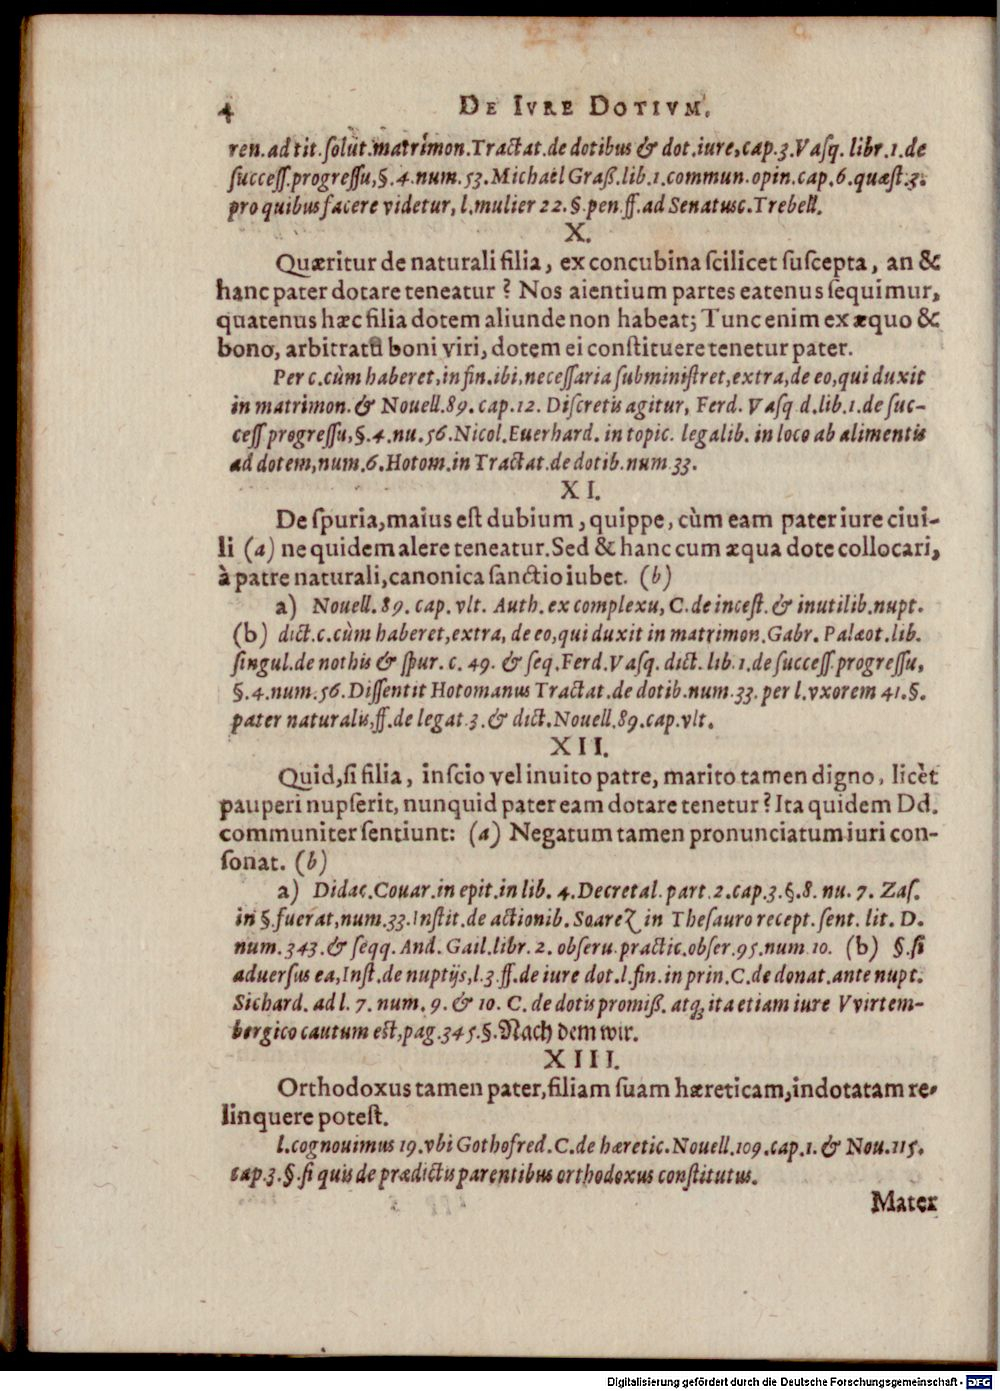 4 DE IVRE DOTIVM.
ren. ad tit. ſolut. matrimon. Tractat. de dotibus & dot. iure, cap. 3. Vaſq. libr. 1. de
ſucceſſ. progreſſu, §. 4. num. 53. Michael Graß. lib. 1. commun. opin. cap. 6. quæſt. 3.
pro quibus facere videtur, l. mulier 22. §. pen. ff. ad Senatusc. Trebell.
X.
Quæritur de naturali filia, ex concubina ſcilicet ſuſcepta, an &
hanc pater dotare teneatur? Nos aientium partes eatenus ſequimur,
quatenus hæc filia dotem aliunde non habeat; Tunc enim ex æquo &
bono, arbitratu boni viri, dotem ei conſtituere tenetur pater.
Per c. cùm haberet, in fin. ibi, neceſſaria ſubminiſtret, extra, de eo, qui duxit
in matrimon. & Nouell. 89. cap. 12. Diſcretis agitur, Ferd. Vaſq d. lib. 1. de ſuc-
ceſſ progreſſu, §. 4. nu. 56. Nicol. Euerhard. in topic. legalib. in loco ab alimentis
ad dotem, num. 6. Hotom. in Tractat. de dotib. num. 33.
XI.
De ſpuria, maius eſt dubium, quippe, cùm eam pater iure ciui-
li (a) ne quidem alere teneatur. Sed & hanc cum æqua dote collocari,
à patre naturali, canonica ſanctio iubet. (b)
a) Nouell. 89. cap. vlt. Auth. ex complexu, C. de inceſt. & inutilib. nupt.
(b) dict. c. cùm haberet, extra, de eo, qui duxit in matrimon. Gabr. Palæot. lib.
ſingul. de nothis & ſpur. c. 49. & ſeq. Ferd. Vaſq. dict. lib. 1. de ſucceſſ. progreſſu,
§. 4. num. 56. Diſſentit Hotomanus Tractat. de dotib. num. 33. per l. vxorem 41. §.
pater naturalis, ff. de legat. 3. & dict. Nouell. 89. cap. vlt.
XII.
Quid, ſi filia, inſcio vel inuito patre, marito tamen digno, licèt
pauperi nupſerit, nunquid pater eam dotare tenetur? Ita quidem Dd.
communiter ſentiunt: (a) Negatum tamen pronunciatum iuri con-
ſonat. (b)
a) Didac. Couar. in epit. in lib. 4. Decretal. part. 2. cap. 3. §. 8. nu. 7. Zaſ.
in §. fuerat, num. 33. Inſtit. de actionib. Soarez in Theſauro recept. ſent. lit. D.
num. 343. & ſeqq. And. Gail. libr. 2. obſeru. practic. obſer. 95. num. 10. (b) §. ſi
aduerſus ea, Inſt. de nuptijs, l. 3. ff. de iure dot. l. fin. in prin. C. de donat. ante nupt.
Sichard. ad l. 7. num. 9. & 10. C. de dotis promiß. atq; ita etiam iure Vvirtem-
bergico cautum eſt, pag. 345. §. Nach dem wir.
XIII.
Orthodoxus tamen pater, filiam ſuam hæreticam, indotatam re-
linquere poteſt.
l. cognouimus 19. vbi Gothofred. C. de hæretic. Nouell. 109. cap. 1. & Nou. 115.
cap. 3. §. ſi quis de prædictis parentibus orthodoxus conſtitutus.
Mater
Digitalisierung gefördert durch die Deutsche Forschungsgemeinschaft - DFG